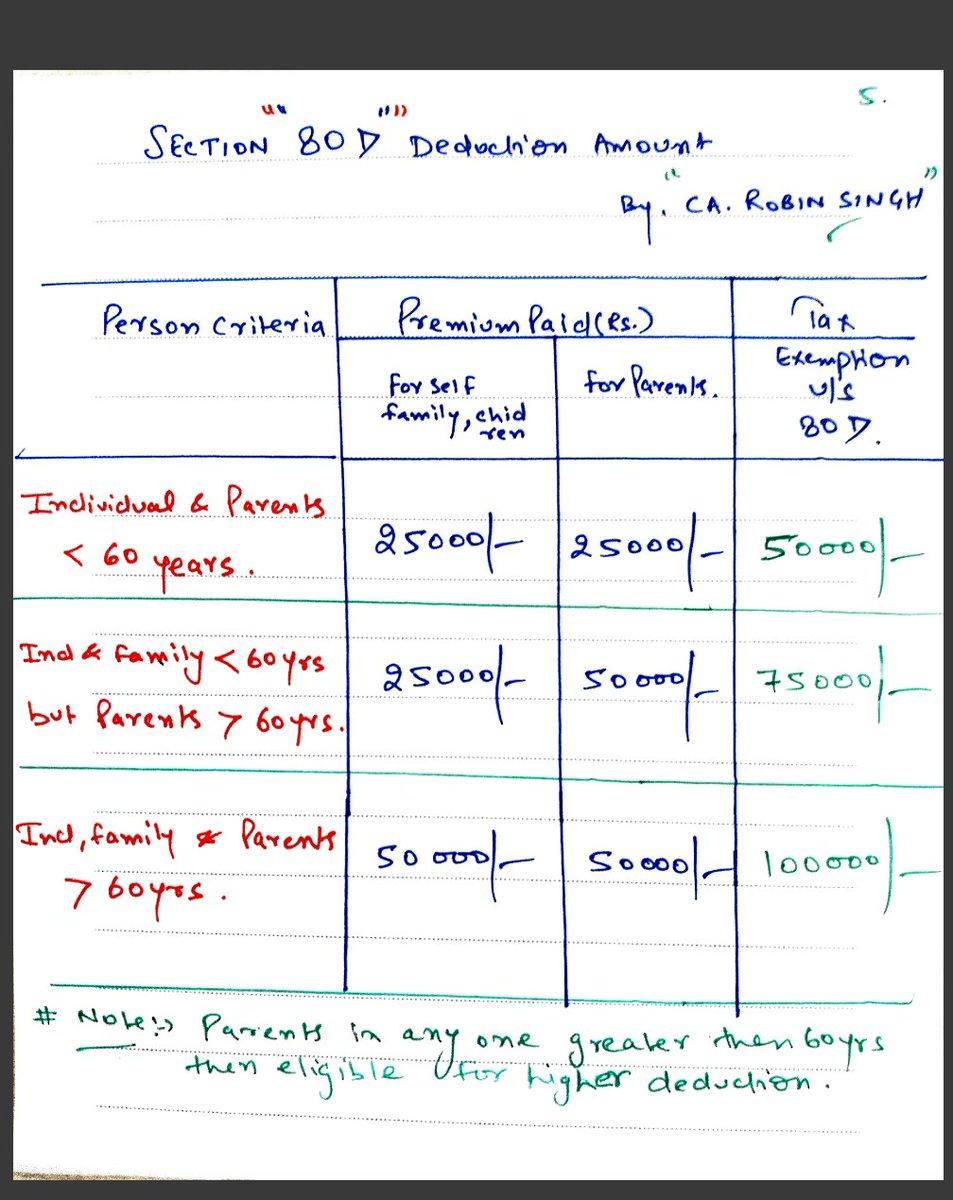 5.
SECTION "80D" Deduction Amount
By, "CA. ROBIN SINGH"
Person Criteria
Premium Paid (Rs.)
Tax
Exemption
u/s
80D.
For self
family, chid
ren
for Parents.
Individual & Parents
< 60 years.
25000/-
25000/-
50000/-
Ind & family < 60yrs
but Parents > 60yrs.
25000/-
50000/-
75000/-
Ind, family & Parents
> 60yrs.
50000/-
50000/-
100000/-
# Note:-> Parents in any one greater then 60yrs
then eligible for higher deduction.